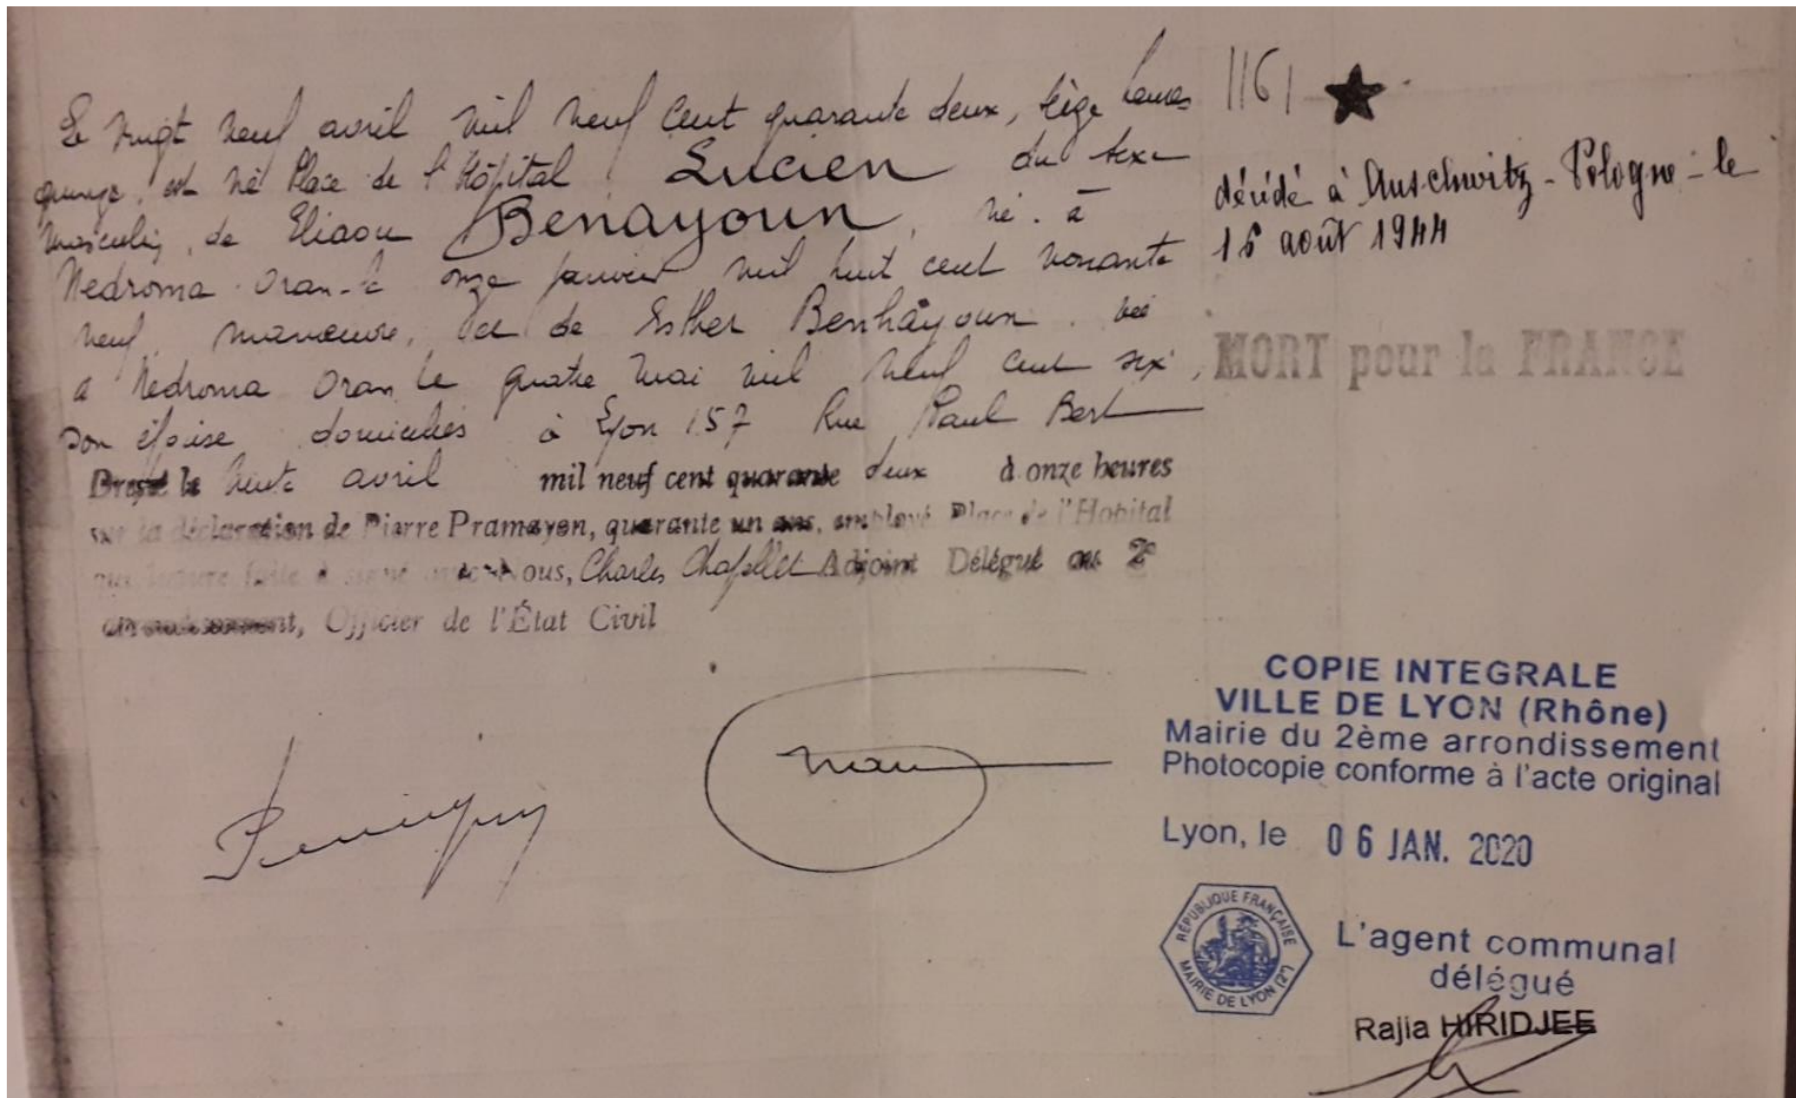 Le vingt neuf avril mil neuf cent quarante deux, seize heures
quinze, est né Place de l'Hôpital, Lucien du sexe
masculin, de Eliaou Benayoun, né à
Nedroma Oran le onze janvier mil huit cent nonante
neuf, manœuvre, et de Esther Benhayoun, née
a Nedroma Oran le quatre mai mil neuf cent six,
son épouse domiciliés à Lyon 157 Rue Paul Bert
Dressé le trente avril mil neuf cent quarante deux à onze heures
sur la déclaration de Pierre Pramayon, quarante un ans, employé Place de l'Hôpital
qui lecture faite à signé avec Nous, Charles Chaplet Adjoint Délégué au 2e
arrondissement, Officier de l'État Civil
1161 ★
décédé à Auschwitz - Pologne - le
16 août 1944
MORT pour la FRANCE
COPIE INTEGRALE
VILLE DE LYON (Rhône)
Mairie du 2ème arrondissement
Photocopie conforme à l'acte original
Lyon, le 06 JAN. 2020
RÉPUBLIQUE FRANÇAISE
MAIRIE DE LYON (2e)
L'agent communal
délégué
Rajia HIRIDJEE